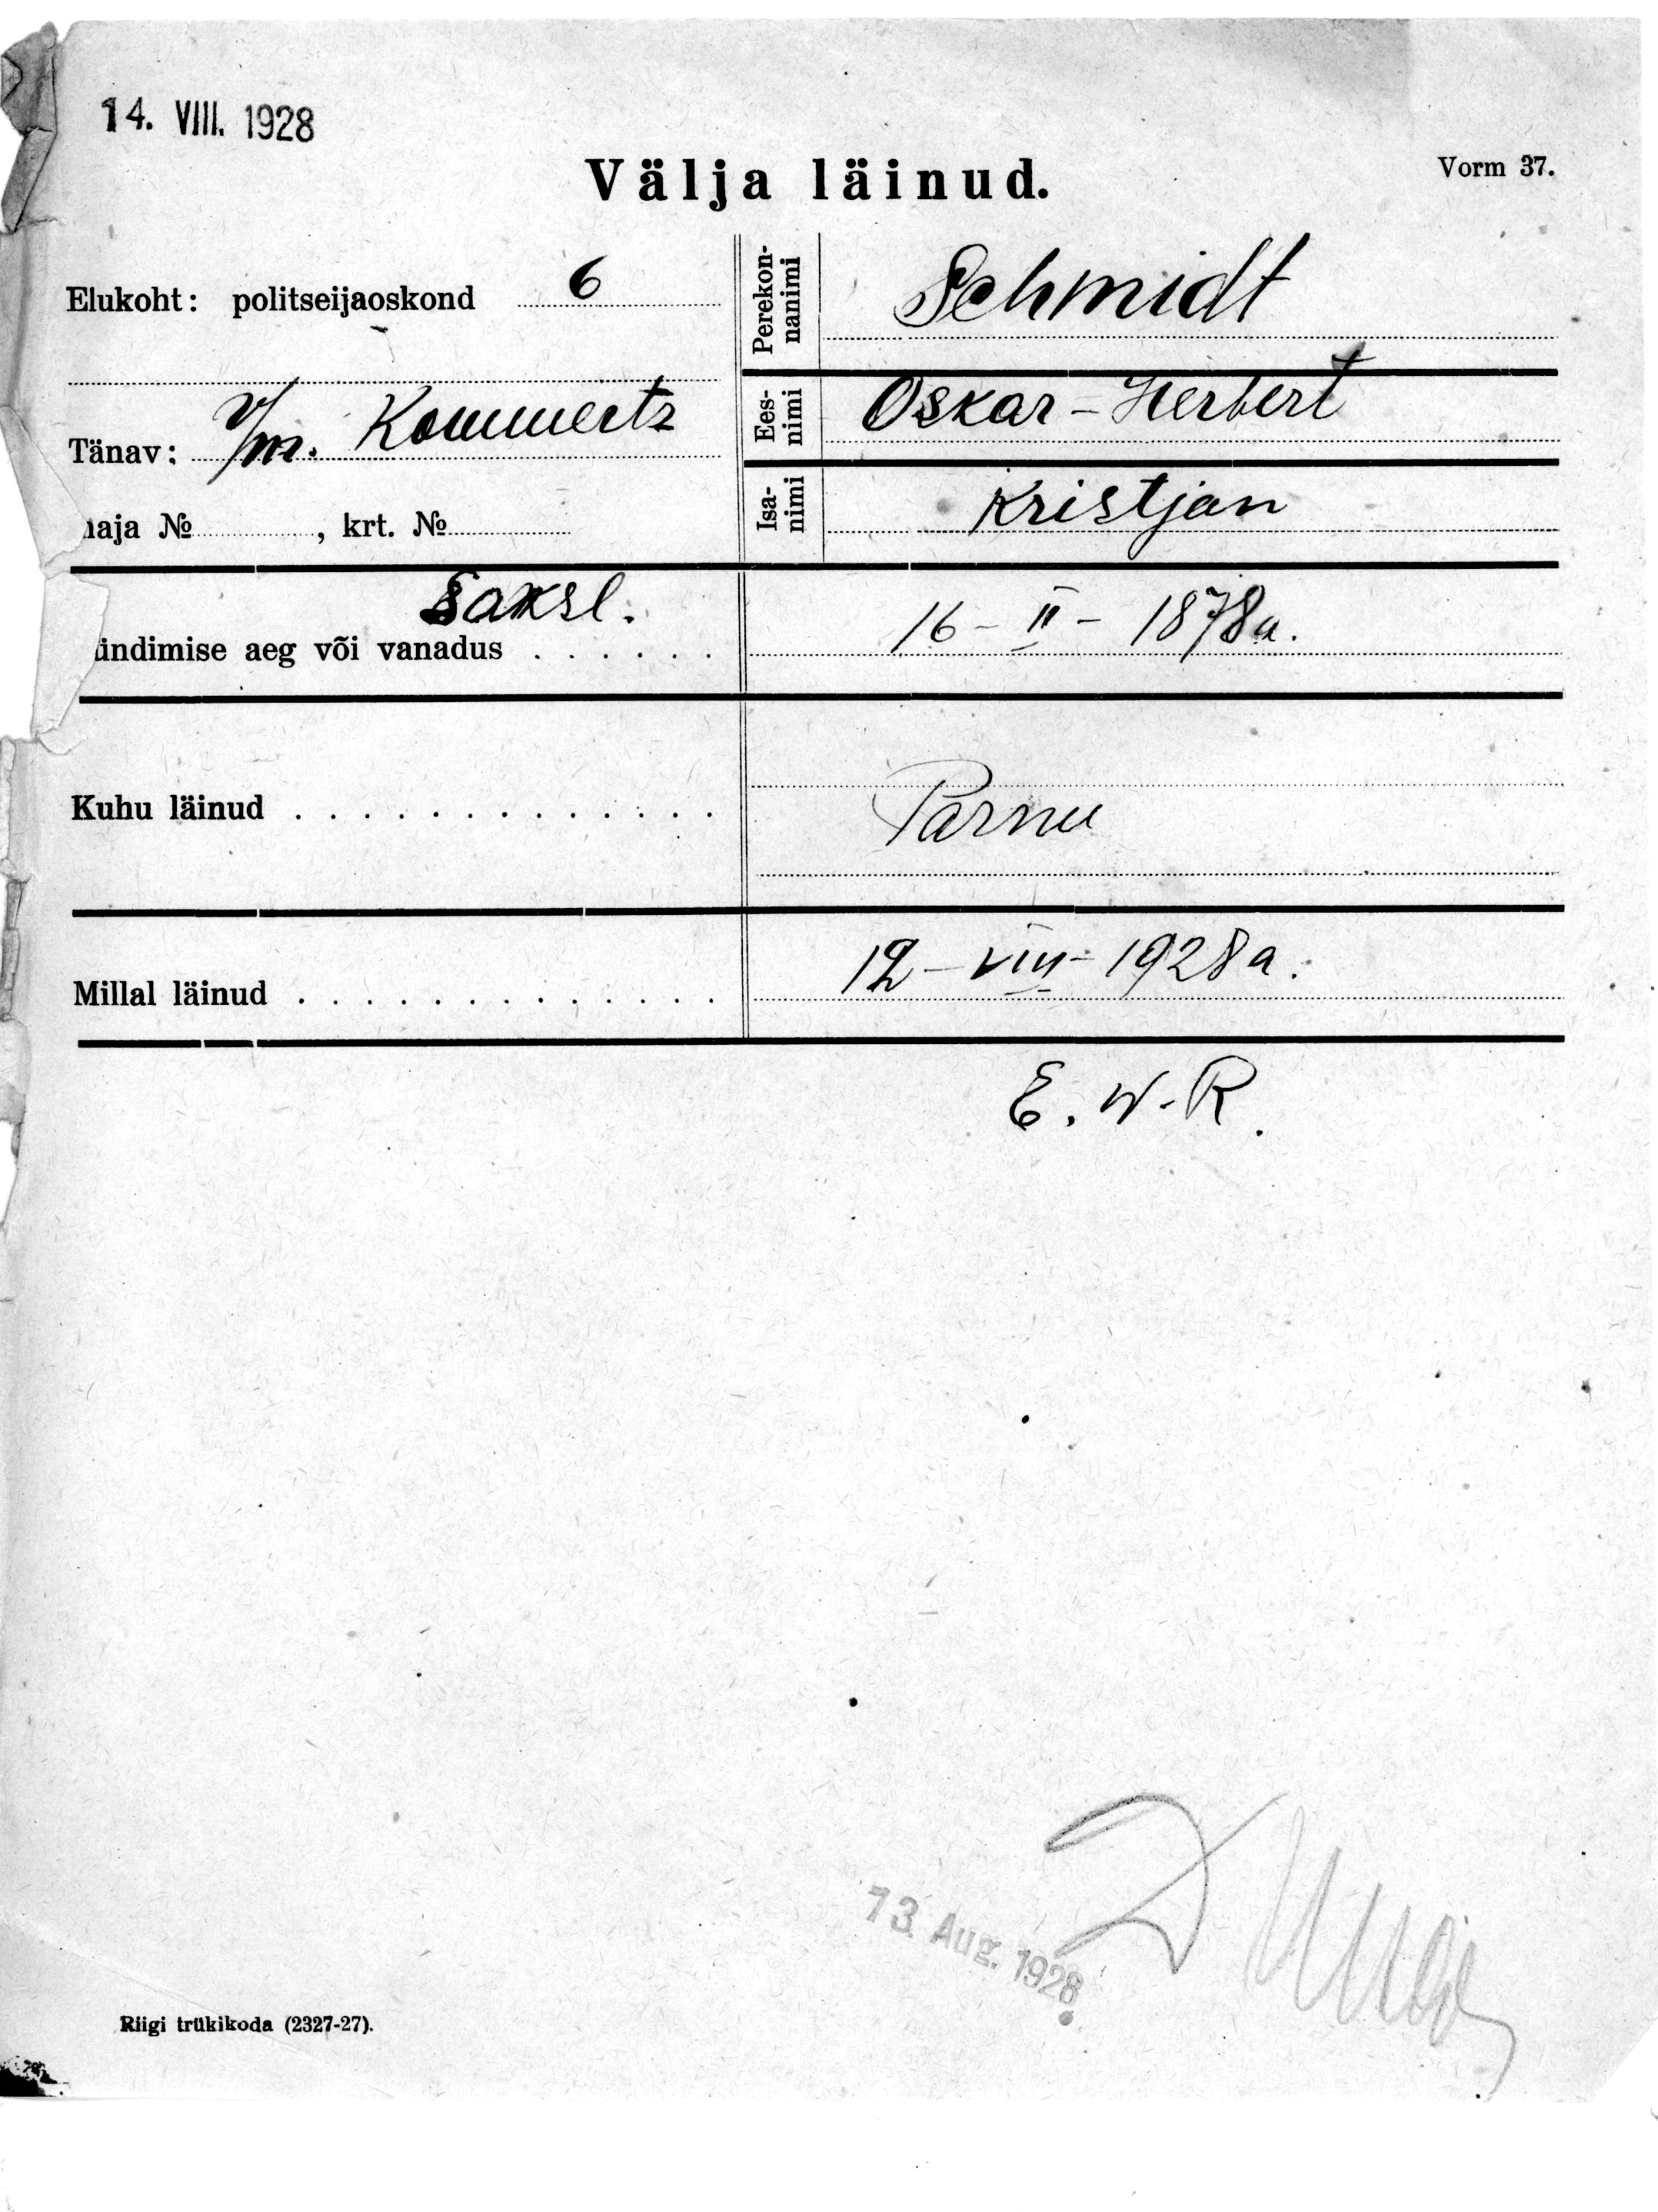 14. VIII. 1928
Välja läinud.
Vorm 37.
Elukoht: politseijaoskond 6
Tänav: v/m. Kommerts
maja № , krt. №
Perekon-
nanimi
Schmidt
Ees-
nimi
Oskar-Herbert
Isa-
nimi
Kristjan
Saksl.
ündimise aeg või vanadus . . . . . .
16-II-1878a.
Kuhu läinud . . . . . . . . . . . . . .
Pärnu
Millal läinud . . . . . . . . . . . . . .
12-VIII-1928a.
E. W. R.
13. Aug. 1928
Riigi trükikoda (2327-27).